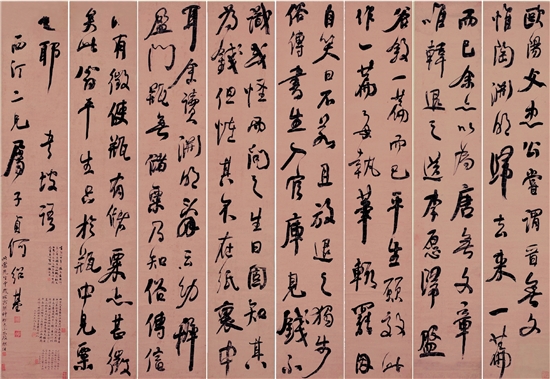 歐陽文忠公嘗謂晉無文章
惟陶淵明歸去來一篇
而已余亦以為唐無文章
唯韓退之送李愿歸盤
谷敘一篇而已平生願效此
作一篇每執筆輒罷因
自笑曰不若且放退之獨步
俗傳書生入官庫見錢不
識或怪而問之生曰固知其
為錢但怪其不在紙裹中
耳余讀淵明辭云幼稚
盈門瓶無儲粟乃知俗傳信
而有徵使瓶有儲粟亦甚微
矣此翁平生只於瓶中見粟
也耶 書坡語
西汀二兄屬子貞何紹基